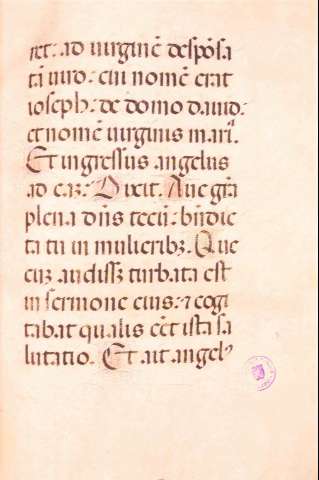 ret: ad uirginē despōsa
tā uiro: cui nomē erat
ioseph: de domo dauid:
et nomē uirginis mari᷎.
Et ingressus angelus
ad eā: Dixit. Aue gr̄a
plena dn̄s tecū: bn̄dic
ta tu in mulieribꝫ. Que
cuꝫ audissꝫ turbata est
in sermone eius: ⁊ cogi
tabat qualis eēt ista sa
lutatio. Et ait angelꝰ